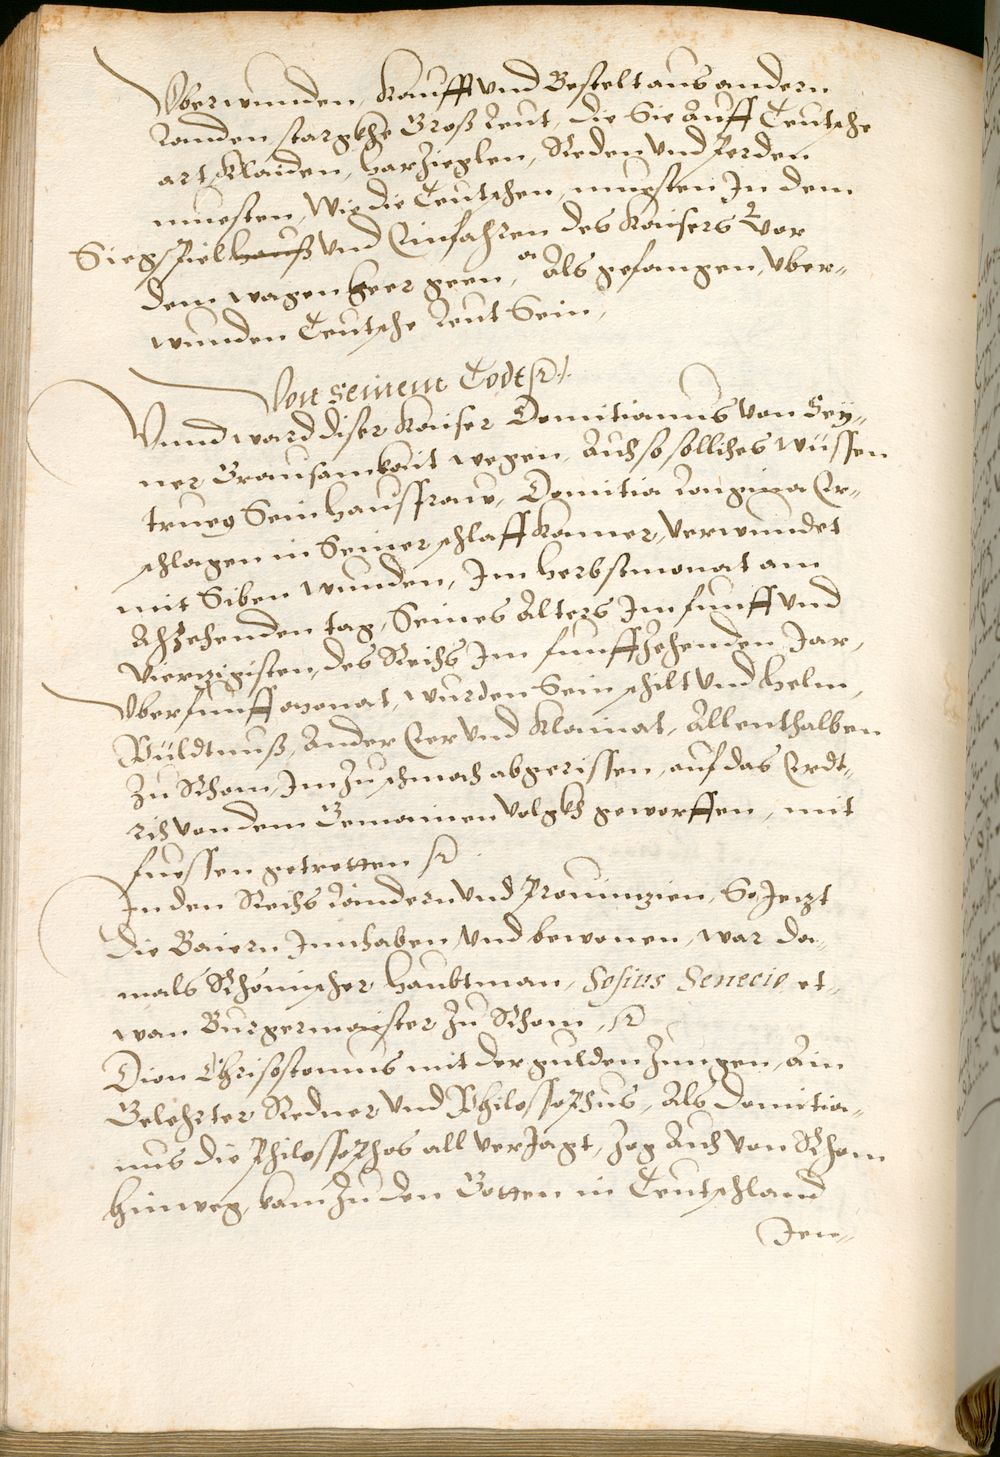 Vberwunden, Kaufft vnd Bestelt aus andern
Landen starckhe Gros Leut, die Sie Auff Teutsche
art Klaiden, har Zieglen, Reden vnd Perden
muesten, Wie die Teutschen, muesten In dem
Siegspiel hauß vnd Einfahren des Kaisers Vor
dem wagen heer geen, Als gefangen, vber-
wunden Teutsche Leut Sein,
Von Seinem Todt etc.
Vnnd ward diser Kaiser Domitianus von Sey-
ner Grausamkait wegen, Auch so solliches wüssen
trueg Sein hausfraw, Domitia Longina Er-
schlagen in Seiner schlaff Kamer, Verwundet
mit Siben wunden, Im herbstmonat am
Achzehenden tag, Seines Alters Im funff vnd
Vierzigisten, des Reichs Im funffzehenden Jar,
Vber funff monat, wurden Sein schilt vnd helm,
Büldtnuß, Ander Eer vnd Klainat, Allenthalben
Zu Rhom, Im Zu schmach abgerissen, auf das Erdt-
rich von dem Gemainen Volgkh geworffen, mit
fuessen getretten etc.
In den Reichs Ländern vnd Prouinzien, So Jezt
die Baiern Innhaben vnd bewonen, war da-
mals Rhömischer haubtman, Sosius Senecio et-
wan Burgermaister Zu Rhom, etc.
Dion Chrisostomus mit der gulden Zungen, Ain
Gelehrter Redner vnd Philossophus, Als Domitia-
nus die Philossophos all verJagt, Zog Auch von Rhom
hinweg, kam Zu den Gotten in Teutschland
Jen-